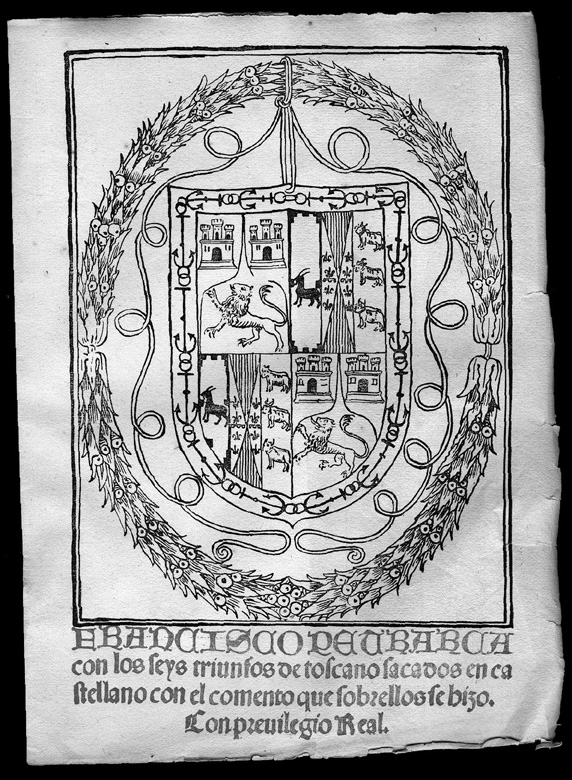 FRANCISCO PETRARCA
con los seys triunfos de toscano sacados en ca
stellano con el comento que sobrellos se hizo.
Con previlegio Real.